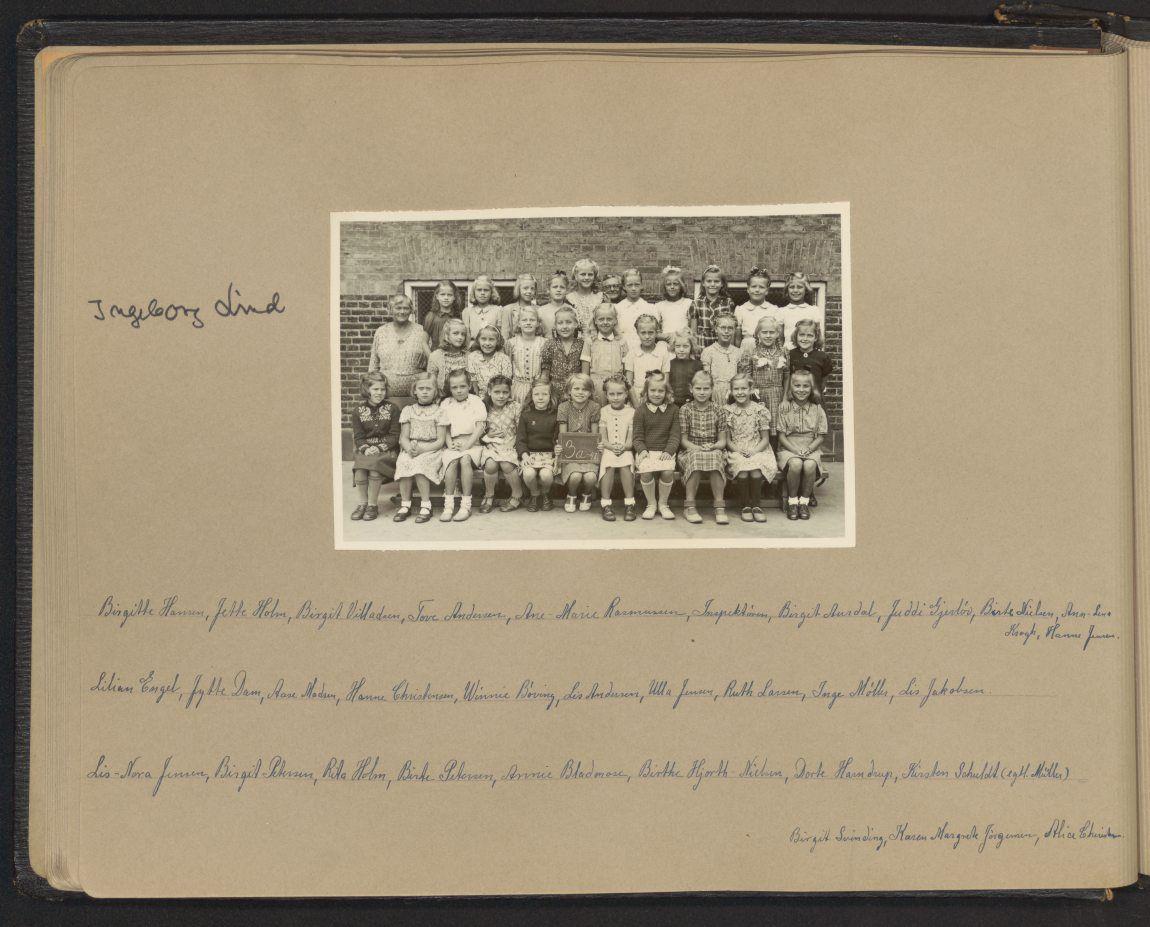 Ingeborg Lind
3a-41
Birgitte Hansen, Jette Holm, Birgit Villadsen, Tove Andersen, Ane-Marie Rasmussen, Inspektören, Birgit Aursdal, Juddi Gjerlöv, Birte Nielsen, Ann-Lena
Krogh, Hanne Jensen.
Lilian Engel, Jytte Dam, Aase Madsen, Hanne Christensen, Winnie Böving, Lis Andersen, Ulla Jensen, Ruth Larsen, Inge Möller, Lis Jakobsen.
Lis-Nora Jensen, Birgit Petersen, Rita Holm, Birte Petersen, Annie Bladmose, Birthe Hjorth-Nielsen, Dorte Harndrup, Kirsten Schuldt (egtl. Müller)
Birgit Svinding, Karen Margrete Jörgensen, Alice